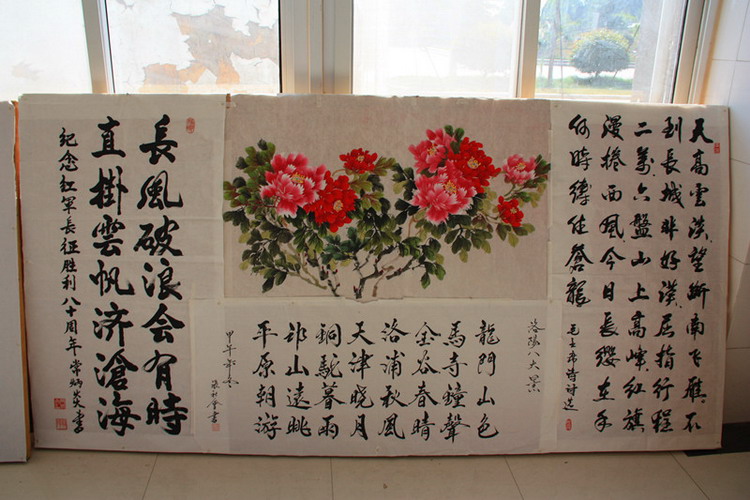 天高雲淡望斷南飛雁不
到長城非好漢屈指行程
二萬六盤山上高峰红旗
漫捲西風今日長纓在手
何時縛住蒼龍
毛主席诗词选
洛陽八大景
龍門山色
馬寺鐘聲
金谷春晴
洛浦秋風
天津晓月
銅駝暮雨
邙山遠眺
平原朝游
甲午
長風破浪会有時
直掛雲帆济滄海
纪念红军長征胜利八十周年常炳炎書